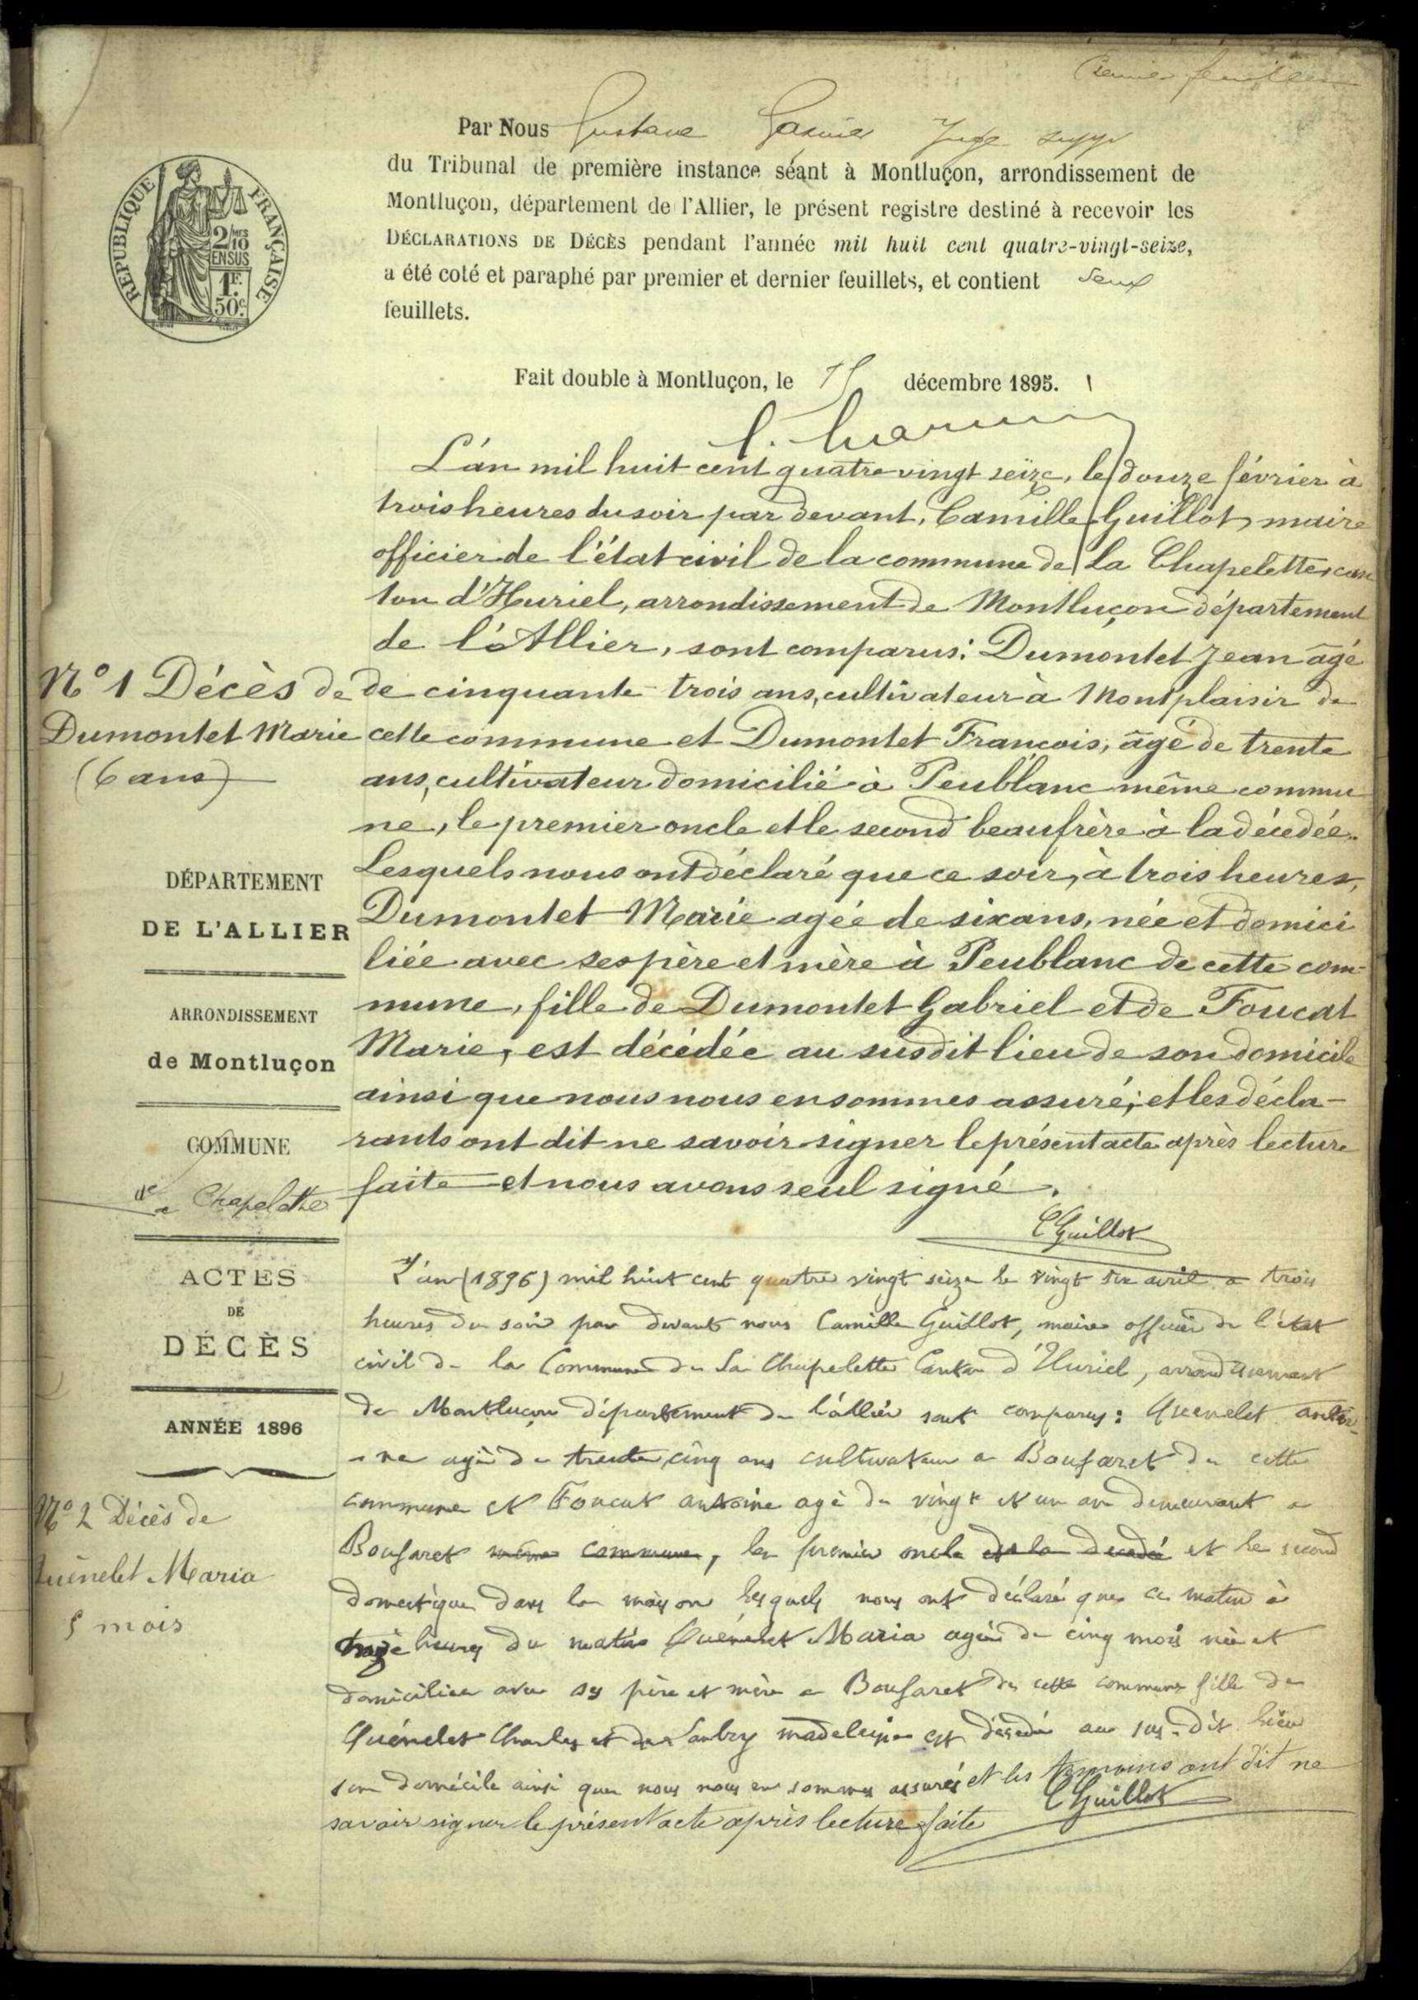 Premier feuillet
Par Nous Gustave Juge supp
du Tribunal de première instance séant à Montluçon, arrondissement de
Montluçon, département de l'Allier, le présent registre destiné à recevoir les
DÉCLARATIONS DE DÉCÈS pendant l'année mil huit cent quatre-vingt-seize,
a été coté et paraphé par premier et dernier feuillets, et contient deux
feuillets.
RÉPUBLIQUE FRANÇAISE
2/10 EN SUS
1F. 50c.
Fait double à Montluçon, le 15 décembre 1895.
L'an mil huit cent quatre vingt seize, le douze février à
trois heures du soir par devant, Camille Guillot, maire
officier de l'état civil de la commune de La Chapelette, can
ton d'Huriel, arrondissement de Montluçon département
de l'Allier, sont comparus: Dumontet Jean âgé
de cinquante-trois ans, cultivateur à Montplaisir de
cette commune et Dumontet François, âgé de trente
ans, cultivateur domicilié à Peublanc même commu
ne, le premier oncle et le second beaufrère à la décédée.
Lesquels nous ont déclaré que ce soir, à trois heures,
Dumontet Marie agée de six ans, née et domici
liée avec ses père et mère à Peublanc de cette com-
mune, fille de Dumontet Gabriel et de Foucat
Marie, est décédée au susdit lieu de son domicile
ainsi que nous nous en sommes assuré; et les décla-
rants ont dit ne savoir signer le présent acte après lecture
faite et nous avons seul signé.
CGuillot
N° 1 Décès de
Dumontet Marie
(6 ans)
DÉPARTEMENT
DE L'ALLIER
ARRONDISSEMENT
de Montluçon
COMMUNE
de Chapelette
ACTES
DE
DÉCÈS
ANNÉE 1896
N° 2 Décès de
Quénelet Maria
5 mois
L'an (1896) mil huit cent quatre vingt seize le vingt six avril a trois
heures du soir par devant nous Camille Guillot, maire officier de l'état
civil de la Commune de La Chapelette Canton d'Huriel, arrondissement
de Montluçon département de l'allier sont comparus: Quenelet antoi-
-ne agé de trente cinq ans cultivateur a Boufaret de cette
commune et Foucat antoine agé de vingt et un an demeurant a
Boufaret même commune, le premier oncle de la decedé et le second
domestique dans la maison lesquels nous ont déclaré que ce matin à
heures du matin Quénelet Maria agée de cinq mois née et
domiciliée avec ses père et mère a Boufaret de cette commune fille de
Quénelet Charles et de Laubry madeleine est décédée au sus-dit lieu
son domicile ainsi que nous nous en sommes assurés et les temoins ont dit ne
savoir signer le présent acte après lecture faite
CGuillot